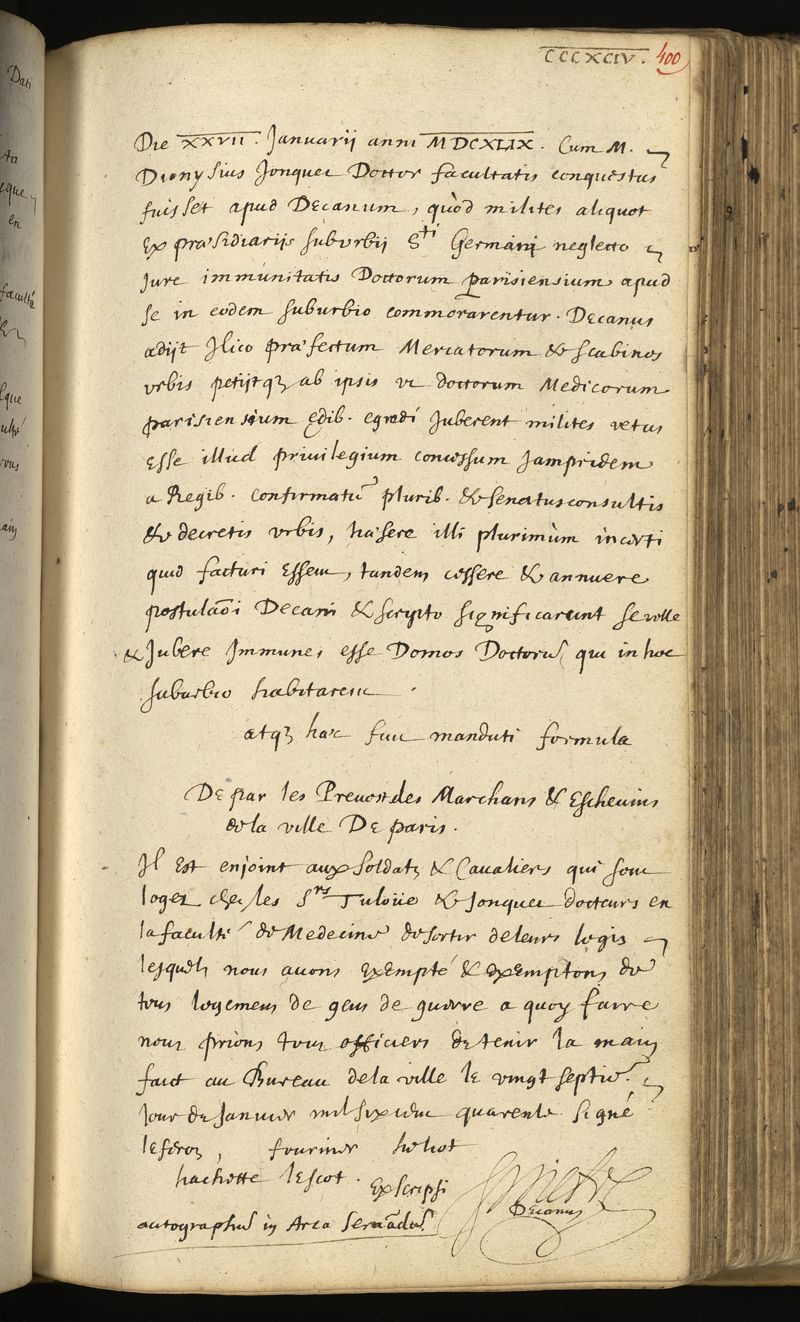 CCCXCIV. 400
Die XXVII. Januarij anni MDCXLIX. Cum M.
Dionysius Jonquet Doctor facultatis conquestus
fuisset apud Decanum, quòd milites aliquot
ex præsidiarijs suburbij Sti Germani neglecto
jure immunitatis Doctorum parisiensium apud
se in eodem suburbio commorarentur. Decanus
adijt Ilico præfectum Mercatorum & scabinos
urbis petijtq; ab ipsis ut doctorum Medicorum
parisiensium ędib. egredi juberent milites vetus
esse illud privilegium concessum jampridem
a Regib. confirmatũ plurib. & senatusconsultis
& decretis urbis, hæsere illi plurimùm incerti
quid facturi essent, tandem cessere & annuere
postulaõi Decani & scripto significarunt se velle
& Jubere Immunes esse Domos Doctorũ qui in hoc
suburbio habitarent.
atq; hæc fuit mandati formula
De par les Prevost des Marchans & Eschevins
de la ville De paris.
Il est enjoint aux soldatz & Cavaliers qui sont
logez chez les Srs Tuloüe & Jonquet docteurs en
la faculté de Medecine de sortir de leurs logis
lesquelz nous avons exempté & exemptons de
tous logemens de gens de guerre a quoy faire
nous prions tous officiers de tenir la main
faict au Bureau de la ville le vingt septie.
Jour de Janvier mil six cent quarente signé
leferon, fournier helot
hachette lescot. Exscripsi
Decanus
autographũ in Arca servãdũ